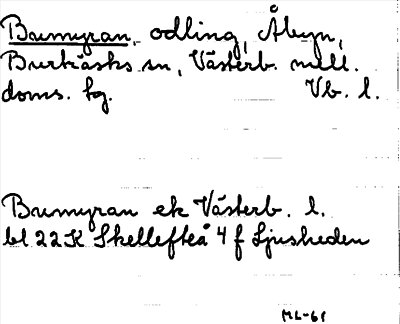 Brumyran, odling, Åbyn,
Burträsks sn, Västerb. mell.
doms. hg. Vb. l.
Brumyran ek Västerb. l.
bl 22 K Skellefteå 4 f Ljusheden
ML-61